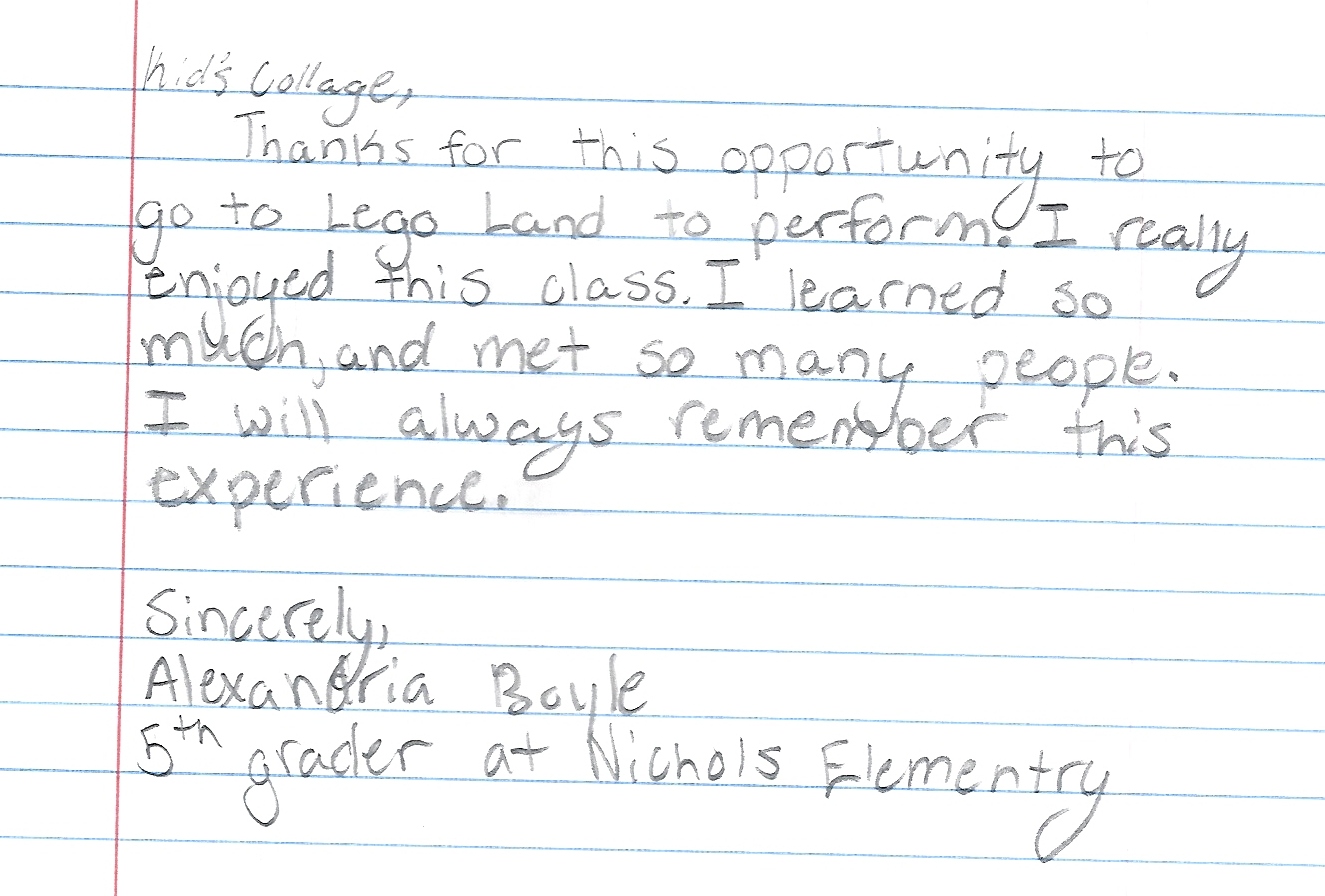 Kid's Collage,
Thanks for this opportunity to
go to Lego Land to perform. I really
enjoyed this class. I learned so
much, and met so many people.
I will always remember this
experience.
Sincerely,
Alexandria Boyle
5th grader at Nichols Elementry